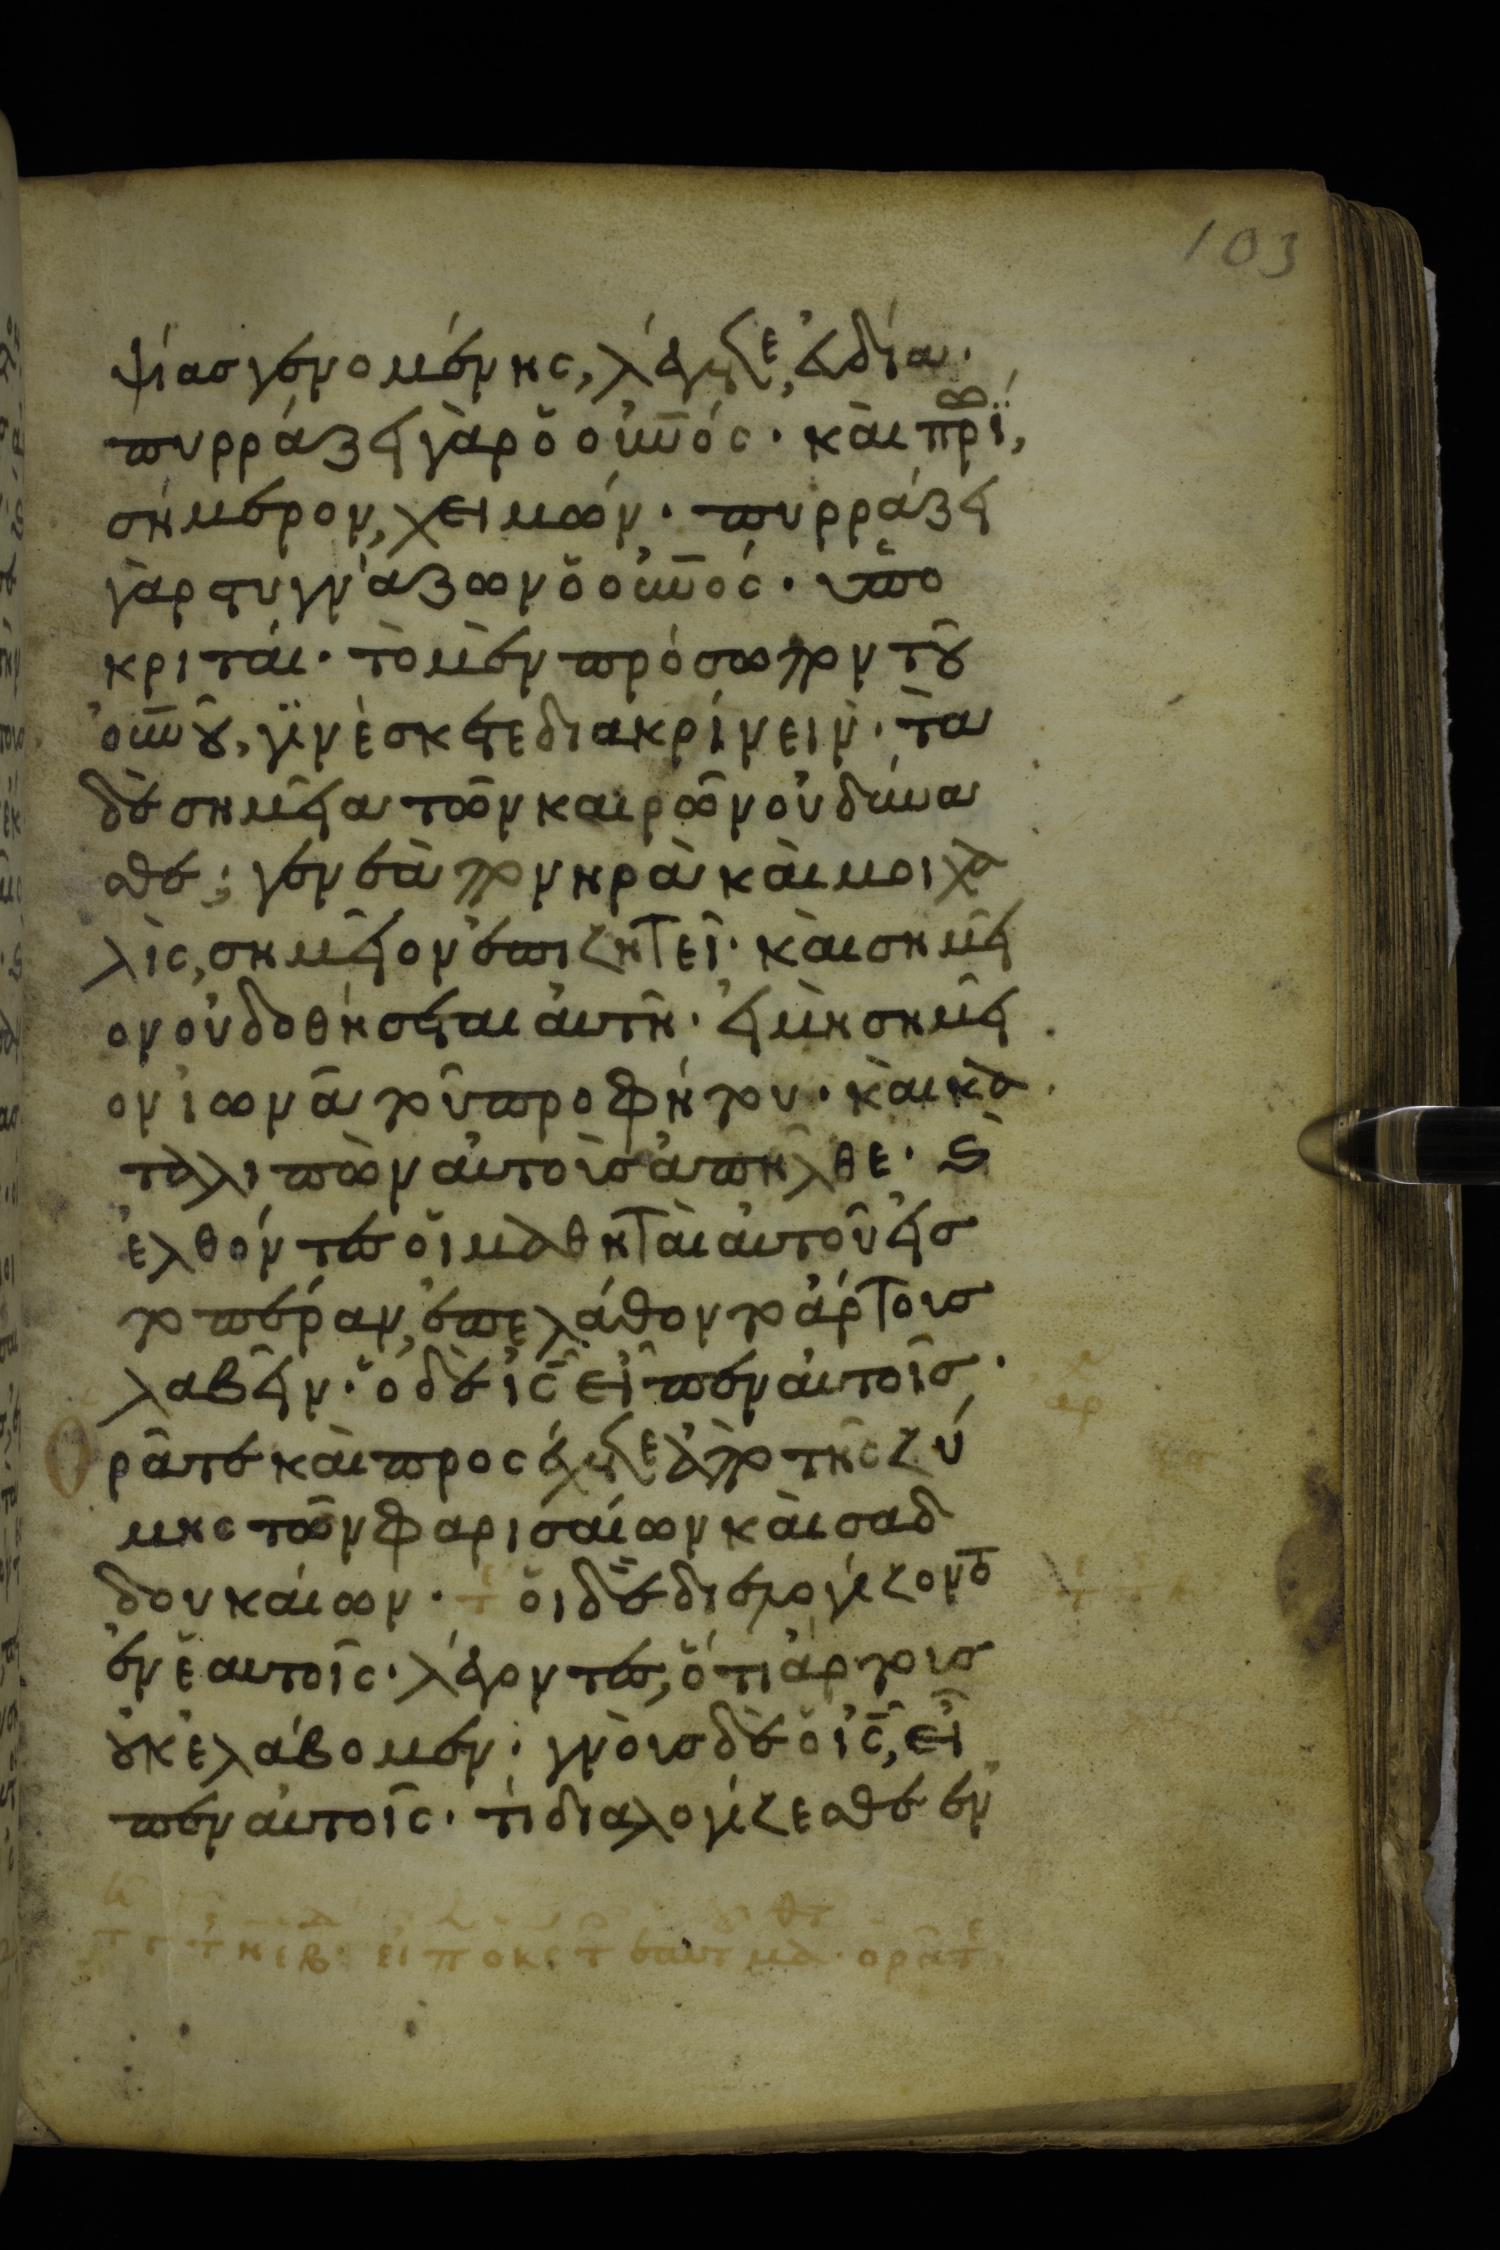 103
ψίας γενομένης, λέγετε, ἐυδία·
πυρράζει γὰρ ὁ οὐνός· καὶ πρωΐ,
σήμερον, χειμών· πυρράζει
γὰρ στυγνάζων ὁ οὐνός· ὑπο
κριταί· τὸ μὲν πρόσωπον τοῦ
οὐνοῦ, γινώσκετε διακρίνειν· τὰ
δὲ σημεῖα τῶν καιρῶν οὐ δύνα
σθε; γενεὰ πονηρὰ καὶ μοιχα
λὶς, σημεῖον ἐπιζητεῖ· καὶ σημεῖ
ον οὐ δοθήσεται αὐτῆ· εἰ μὴ σημεῖ
ον ἰωνᾶ τοῦ προφήτου· καὶ κα
ταλιπὼν αὐτοὺς ἀπῆλθε· καὶ
ἐλθόντες οἱ μαθηταὶ αὐτοῦ εἰς
τὸ πέραν, ἐπελάθοντο ἄρτους
λαβεῖν· ὁ δὲ ις εἶπεν αὐτοῖς·
ὁρᾶτε καὶ προσέχετε ἀπὸ τῆς ζύ
μης τῶν φαρισαίων καὶ σαδ
δουκαίων· οἱ δὲ διελογίζοντο
ἐν ἑαυτοῖς· λέγοντες, ὅτι ἄρτους
οὐκ ἐλάβομεν· γνοὺς δὲ ὁ ις, εἶ
πεν αὐτοῖς· τί διαλογίζεσθε ἐν